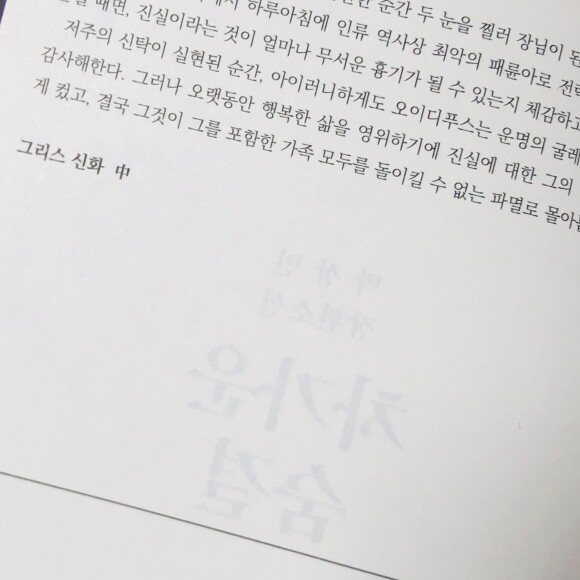 하루아침에 인류 역사상 최악의 패륜아로
때면, 진실이라는 것이 얼마나 무서운 흉기가 될 수 있는지 체감하고
저주의 신탁이 실현된 순간, 아이러니하게도 오이디푸스는 운명의 굴레
감사해한다. 그러나 오랫동안 행복한 삶을 영위하기에 진실에 대한 그의
게 컸고, 결국 그것이 그를 포함한 가족 모두를 돌이킬 수 없는 파멸로
그리스 신화 中
박상민
장편소설
차가운
숨결